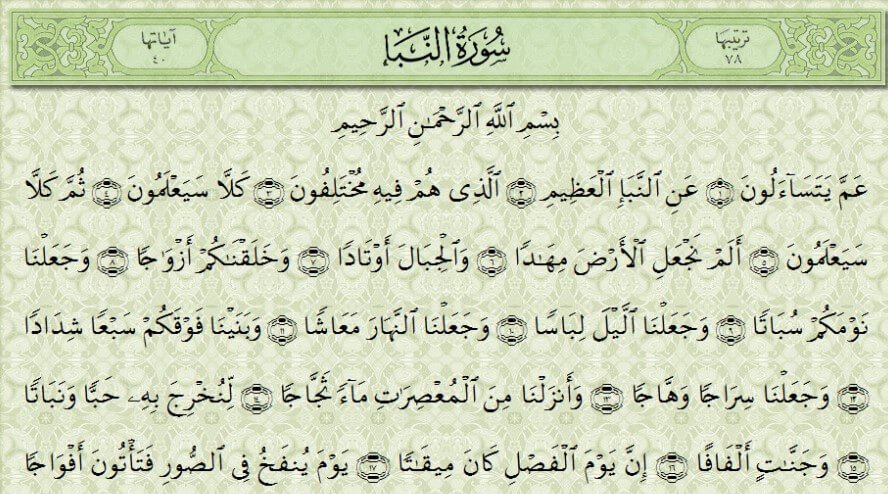 ترتيبها
٧٨
سُورَةُ النَّبَإِ
آياتها
٤٠
بِسْمِ ٱللَّهِ ٱلرَّحْمَـٰنِ ٱلرَّحِيمِ
عَمَّ يَتَسَآءَلُونَ ١ عَنِ ٱلنَّبَإِ ٱلْعَظِيمِ ٢ ٱلَّذِى هُمْ فِيهِ مُخْتَلِفُونَ ٣ كَلَّا سَيَعْلَمُونَ ٤ ثُمَّ كَلَّا
سَيَعْلَمُونَ ٥ أَلَمْ نَجْعَلِ ٱلْأَرْضَ مِهَـٰدًا ٦ وَٱلْجِبَالَ أَوْتَادًا ٧ وَخَلَقْنَـٰكُمْ أَزْوَٰجًا ٨ وَجَعَلْنَا
نَوْمَكُمْ سُبَاتًا ٩ وَجَعَلْنَا ٱلَّيْلَ لِبَاسًا ١٠ وَجَعَلْنَا ٱلنَّهَارَ مَعَاشًا ١١ وَبَنَيْنَا فَوْقَكُمْ سَبْعًا شِدَادًا
١٢ وَجَعَلْنَا سِرَاجًا وَهَّاجًا ١٣ وَأَنزَلْنَا مِنَ ٱلْمُعْصِرَٰتِ مَآءً ثَجَّاجًا ١٤ لِّنُخْرِجَ بِهِۦ حَبًّا وَنَبَاتًا
١٥ وَجَنَّـٰتٍ أَلْفَافًا ١٦ إِنَّ يَوْمَ ٱلْفَصْلِ كَانَ مِيقَـٰتًا ١٧ يَوْمَ يُنفَخُ فِى ٱلصُّورِ فَتَأْتُونَ أَفْوَاجًا